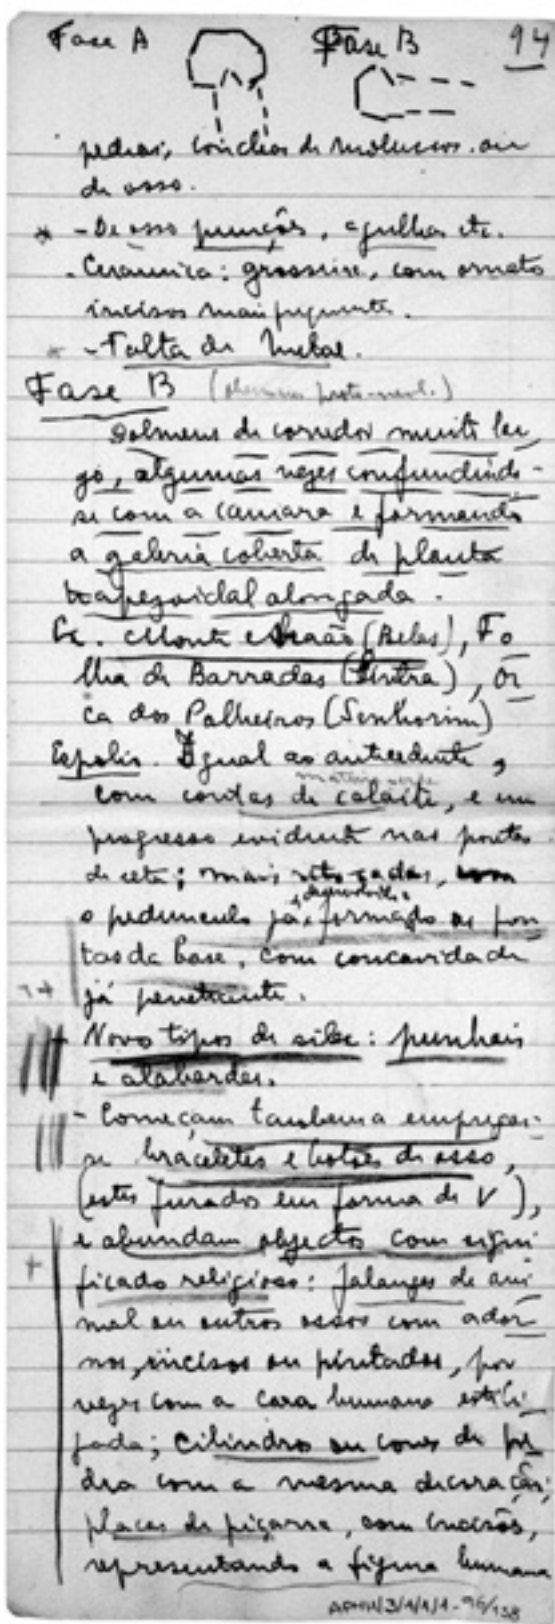 Fase A Fase B 94
pedras, conchas de moluscos ou
de osso.
* - De osso punções, agulhas etc.
- Cerâmica: grosseira, com ornato
incisos mais frequente.
- Falta de Metal.
Fase B
Dolmens de corredor muito lar
go, algumas vezes confundindo-
se com a camara e formando
a galeria coberta de planta
trapezoidal alongada.
Ex. Monte Abraão (Belas), Fo
lha de Barradas (Sintra), Or
ca dos Palheiros (Senhorim)
Espolio. Igual ao antecedente,
com contas de calaite, e um
progresso evidente nas pontas
de seta; mais retocadas, com
o pedunculo já formado as pon
tas da base, com concavidade
já penetrante.
Novo tipos de silex: punhais
e alabardas.
- Começam tambem a empregar-
se braceletes e botões de osso,
(estes furados em forma de V),
e abundam objectos com signi
ficado religioso: falanges de ani
mal ou outros ossos com ador
nos, incisos ou pintados, por
vezes com a cara humana estili
zada; cilindros ou cones de pe
dra com a mesma decoração;
placas de piçarra, com incisões,
representando a figura humana
APMH/3/1/1/1-96/138